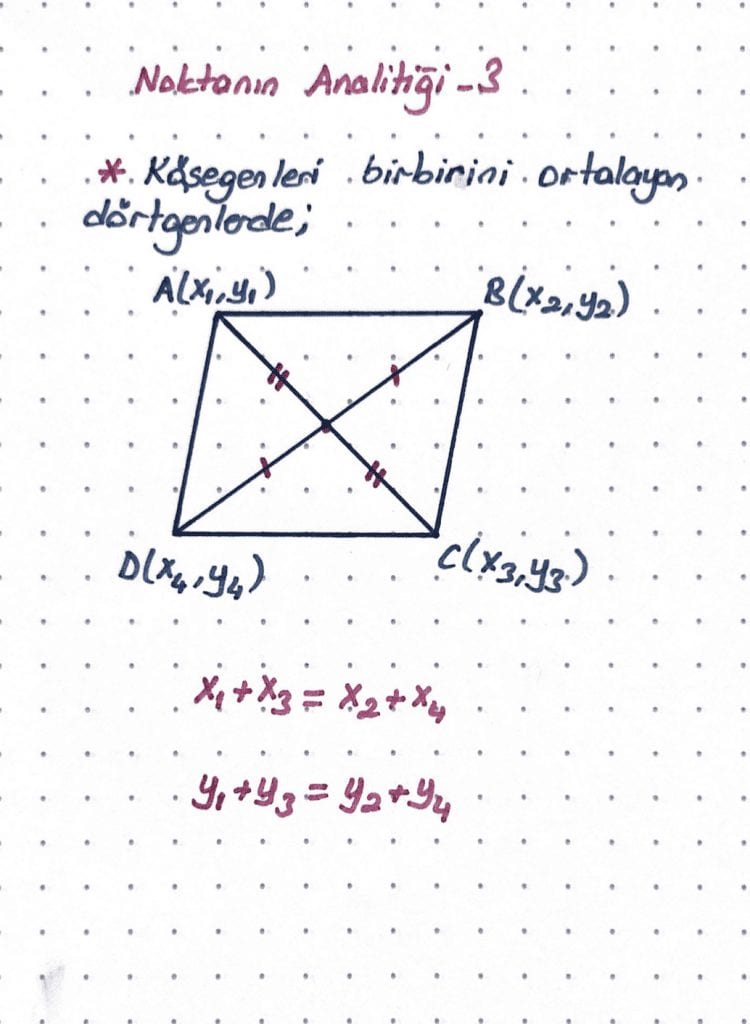 Noktanın Analitiği-3
* Köşegenleri birbirini ortalayan
dörtgenlerde;
A(x₁,y₁)
B(x₂,y₂)
D(x₄,y₄)
C(x₃,y₃)
x₁+x₃=x₂+x₄
y₁+y₃=y₂+y₄